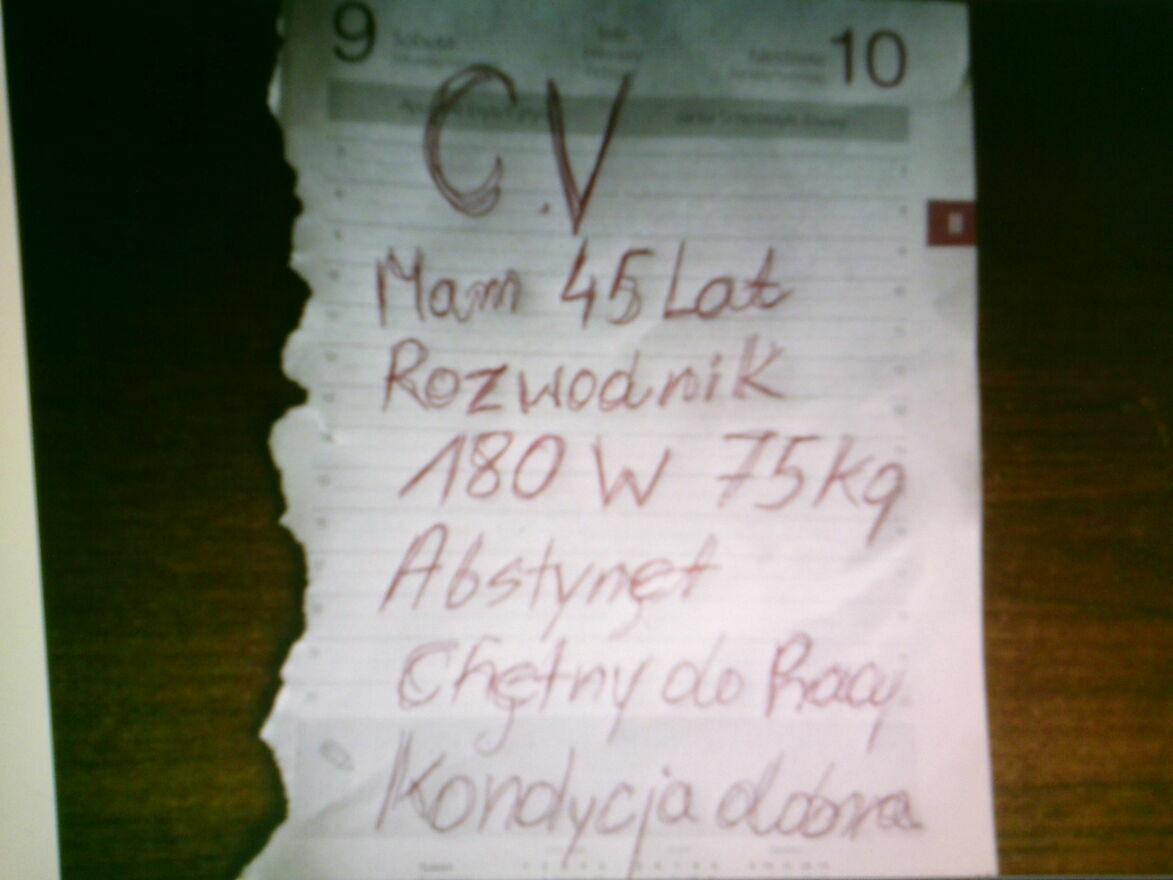 9 Sobota 10
C.V
Mam 45 Lat
Rozwodnik
180 W 75kg
Abstynęt
Chętny do Pracy
Kondycja dobra